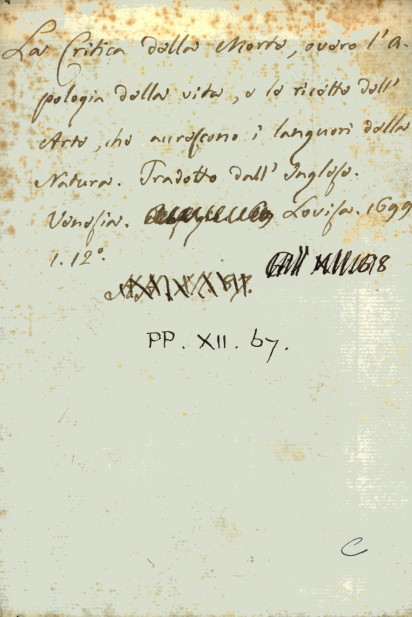 La Critica della Morte, overo l'A-
pologia della vita, e le ricette dell'
Arte, che accrescono i languori della
Natura. Tradotto dall' Inglese.
Venesia. Lovisa. 1699
1. 12°.
PP. XII. 67.
C